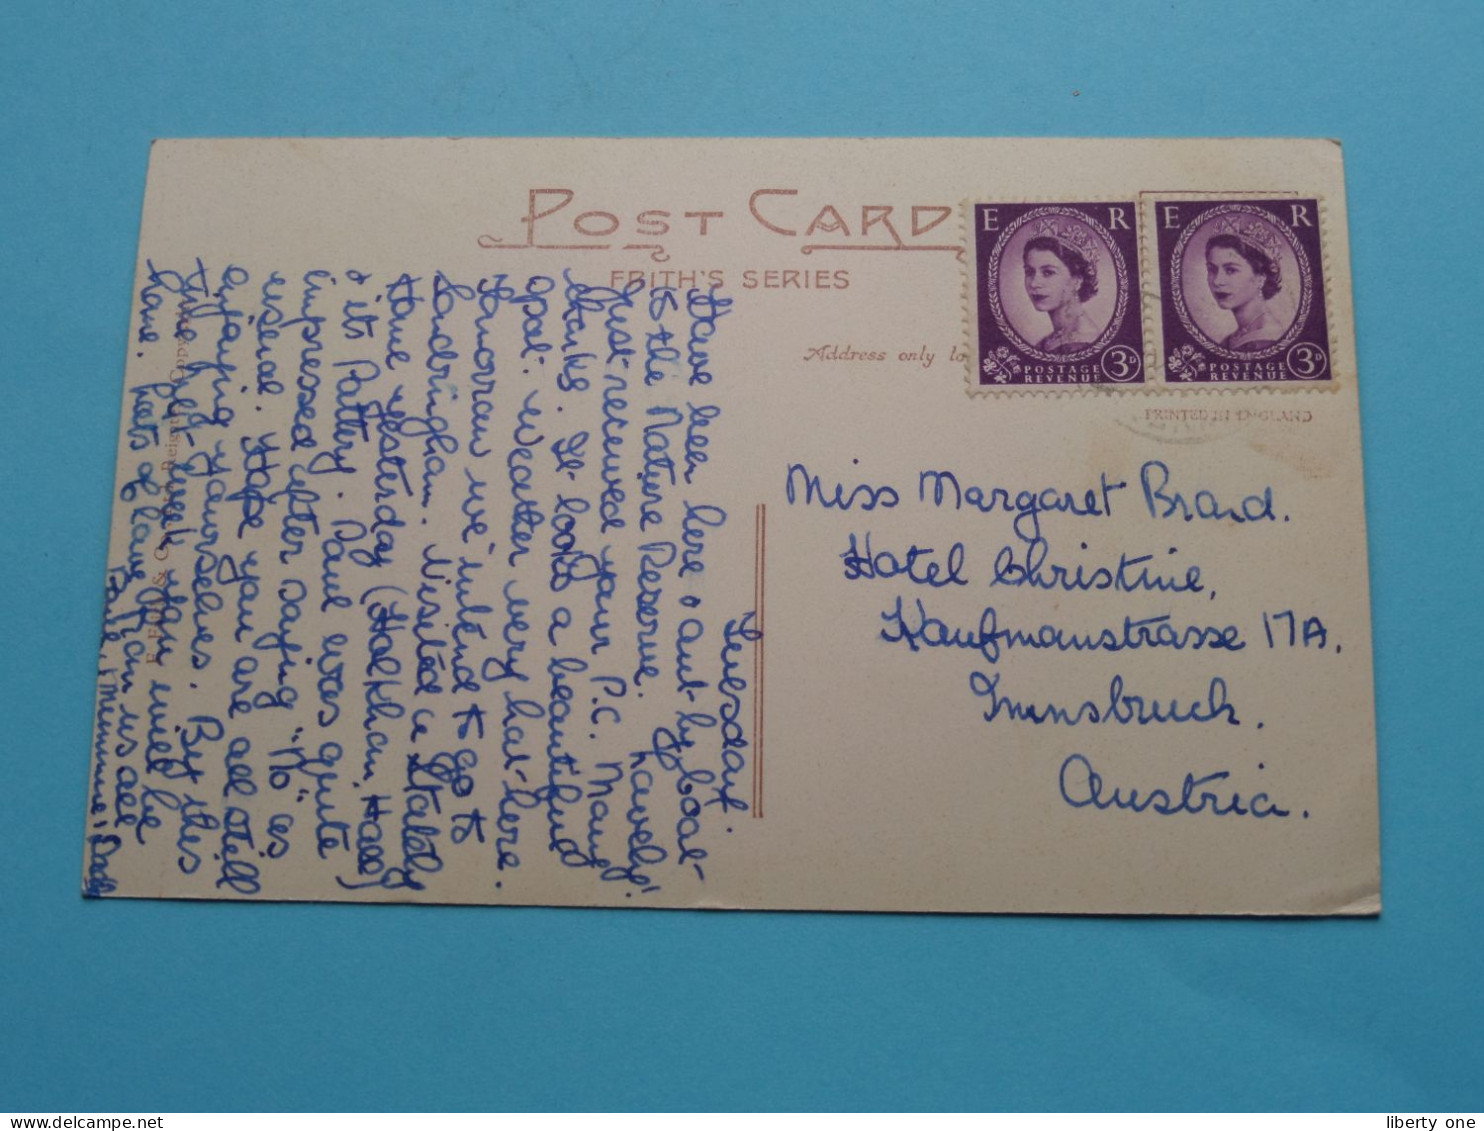 POST CARD
FRITH'S SERIES
Address only
PRINTED IN ENGLAND
E R
3D
POSTAGE
REVENUE
E R
3D
POSTAGE
REVENUE
Tuesday.
Have been here & out by boat
to the Nature Reserve. Lovely!
Just received your P.C. Many
thanks. It looks a beautiful
spot. Weather very hot here.
Tomorrow we intend to go to
Sandringham. Visited a Stately
Home yesterday (Holkham Hall)
& its Pottery. Paul was quite
impressed after saying "No" as
usual. Hope you are all still
enjoying yourselves. By this
time next week you will be
home. Lots of love from us all
Paul, Mummie & Daddy
Miss Margaret Brand.
Hotel Christine,
Kaufmanstrasse 17A,
Innsbruck.
Austria.
liberty one